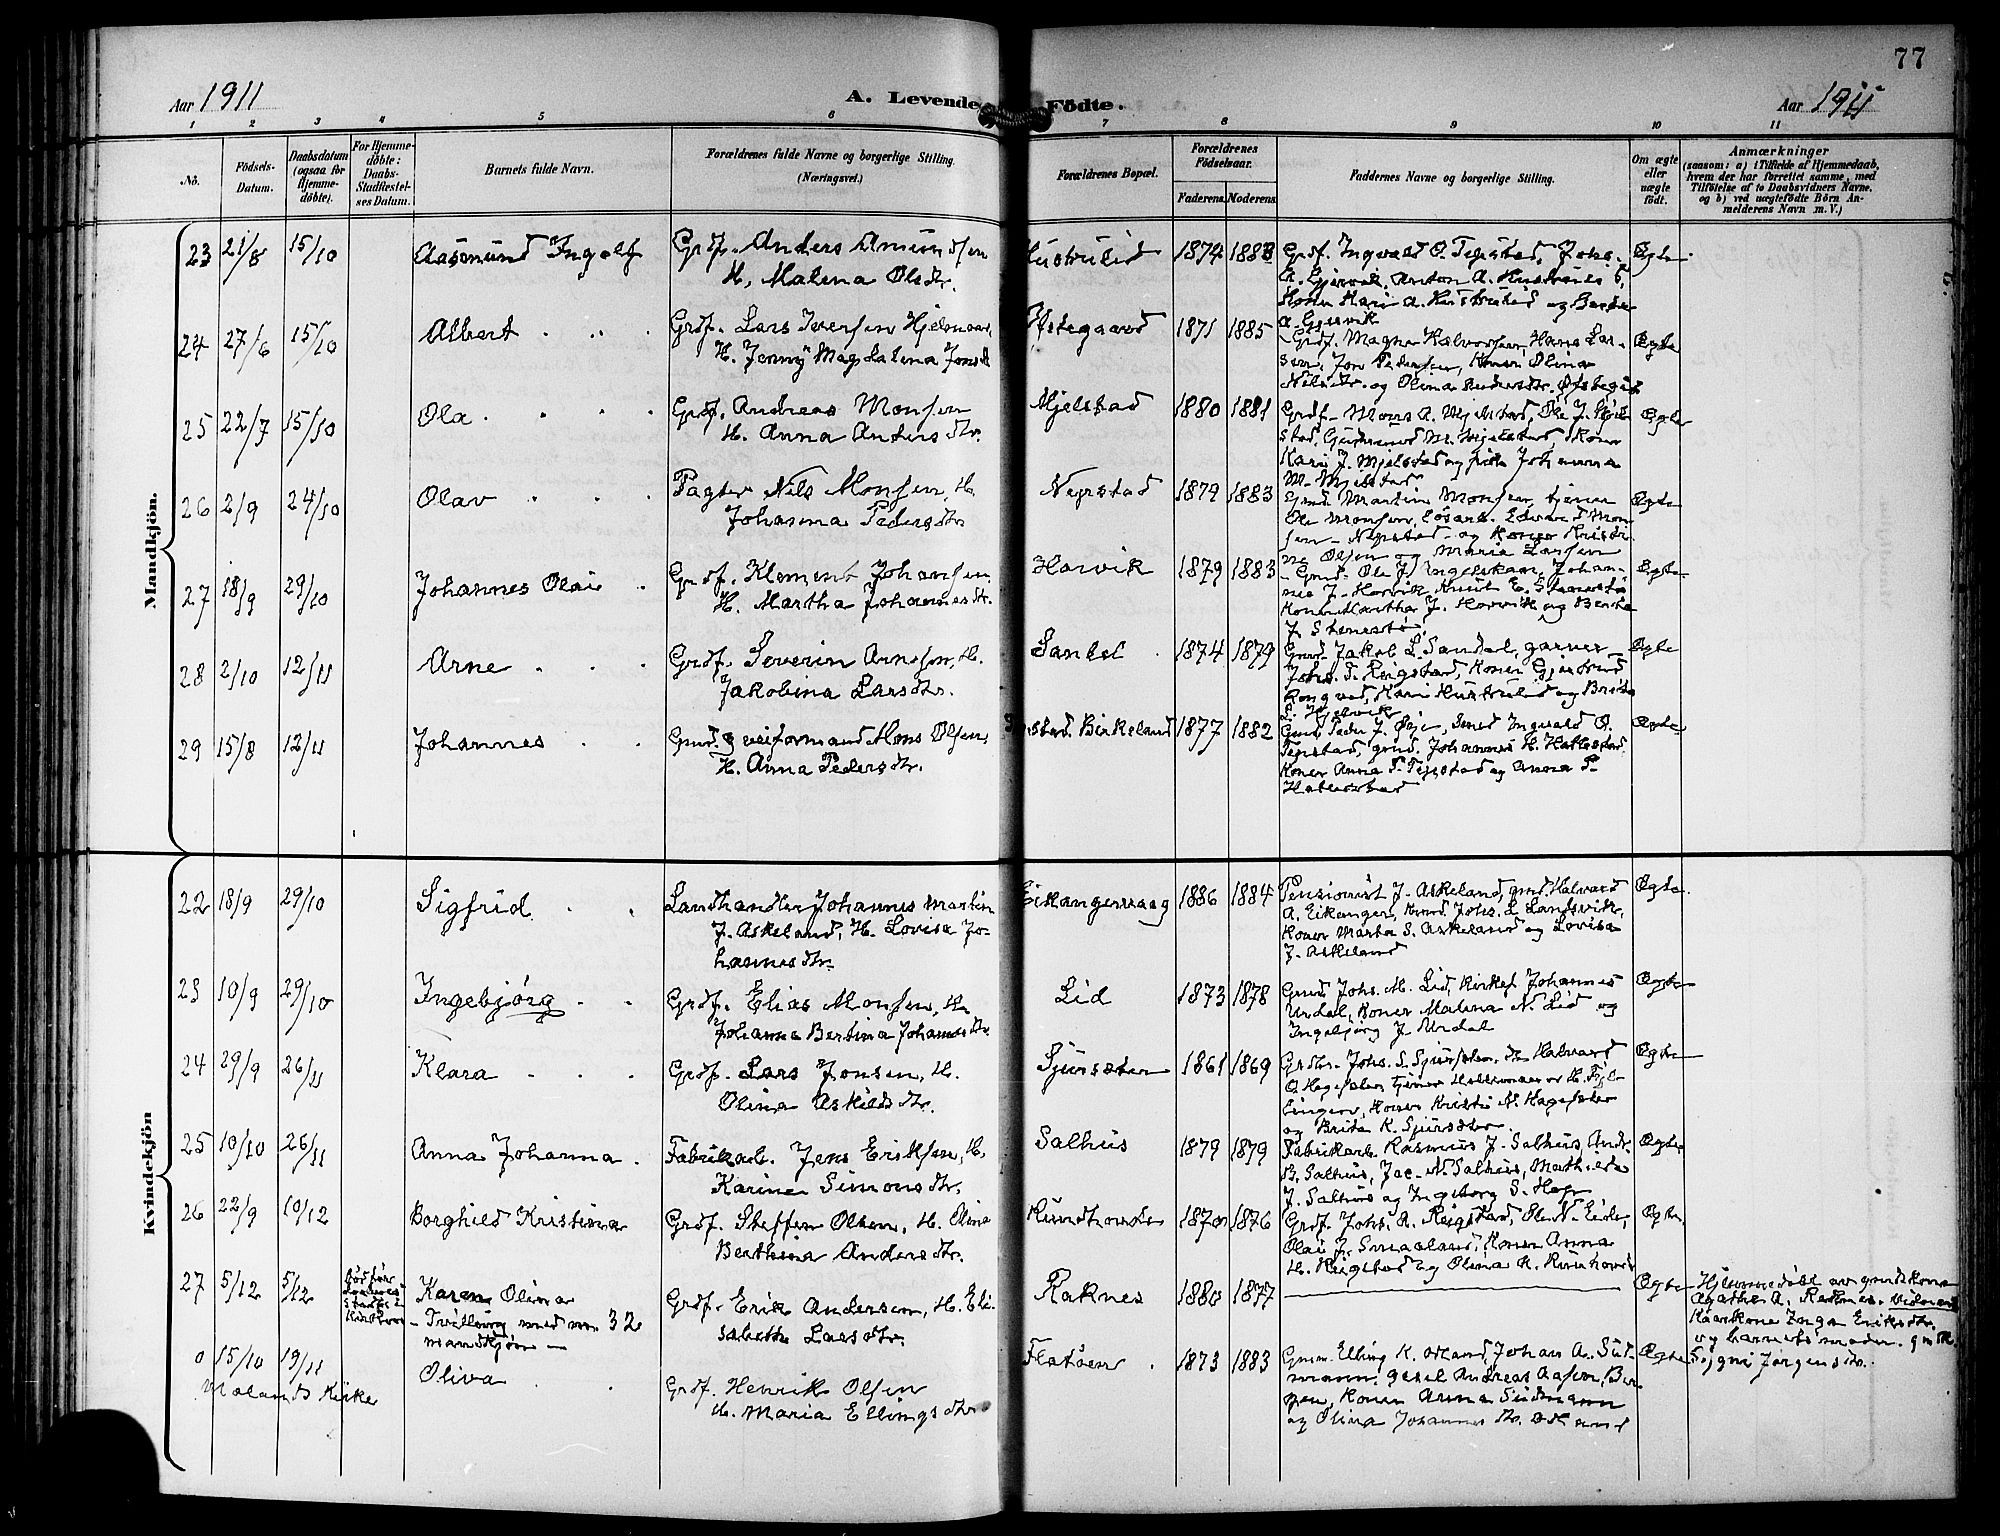 77
Aar 1911
A. Levende Födte.
Aar 1911
1 2 3 4 5 6 7 8 9 10 11
No.
Födsels-Datum.
Daabsdatum (ogsaa for Hjemme-döbte).
For Hjemme-döbte: Daabs-Stadfæstel-ses Datum.
Barnets fulde Navn.
Forældrenes fulde Navne og borgerlige Stilling. (Næringsvei.)
Forældrenes Bopæl.
Forældrenes Födselsaar.
Faderens. Moderens.
Faddernes Navne og borgerlige Stilling.
Om ægte eller uægte födt.
Anmærkninger
(saasom: a) i Tilfælde af Hjemmedaab,
hvem der har forrettet samme, med
Tilföielse af to Daabsvidners Navne,
og b) ved uægtefödte Börn An-
melderens Navn m. V.)
Mandkjön.
23 21/8 15/10 Aasmund Ingolf Grdf. Anders Amundsen
H. Malena Olsdtr.
Hustrulid 1874 1883 Grdf. Ingvald O. Tepstad, Johs.
A. Gjervik, Anton A. Hustrulid,
Koner Mari A. Hustrulid og Berta
A. Gjervik
Ægte
24 27/6 15/10 Albert Grdf. Lars Iversen Hjelmaas
H. Jenny Magdalena Jonsdtr
Øfstegaard 1871 1885 Grdf. Magne Halvorsen, Hans Lar-
sen, Jon Pedersen, Koner Olina
Nilsdtr. og Olina Andersdtr. Øfstegd.
Ægte
25 22/7 15/10 Ola Grdf. Andreas Monsen
H. Anna Andersdtr.
Mjelstad 1880 1881 Grdf. Mons A. Mjelstad, Ole J. Mjel-
stad, Gudmund M. Mjelstad, Koner
Kari J. Mjelstad og pike Johanna
M. Mjelstad
Ægte
26 2/9 24/10 Olav Pagter Nils Monsen, H.
Johanna Pedersdtr
Nepstad 1879 1883 Grmd. Martin Monsen, tjener
Ole Monsen, Løsarb. Edvard Mon
sen - Nepstad - og Koner Kristi
ne Olsen og Maria Larsen
Ægte
27 18/9 29/10 Johannes Olai Grdf. Klement Johansen
H. Martha Johannesdtr.
Horvik 1879 1883 Grmd. Ole J. Ingelskam, Johan-
nes J. Horvik Knut E. Stenestø
Koner Martha J. Horvik og Berta
J. Stenestø
Ægte
28 2/10 12/11 Arne Grdf. Severin Arnesen, H.
Jakobina Larsdtr.
Sandal 1874 1879 Grmd. Jakob L. Sandal, garver
Johs. T. Reigstad, Koner Gjertrud
Rongved, Kari Hustrulid og Brita
L. Hjelvik
Ægte
29 15/8 12/11 Johannes Grmd. & veiformand Mons Olsen,
H. Anna Pedersdtr.
Birkeland 1877 1882 Grmd. Peder J. Øie, Smed Ingvald O.
Tepstad, grmd. Johannes H. Hatlestad
Koner Anna P. Tepstad og Anna P.
Hatlestad
Ægte
Kvindekjön
22 18/9 29/10 Sigfrid Landhandler Johannes Martin
J. Askeland, H. Lovisa Jo-
hannesdtr.
Eikangervaag 1886 1884 Pensionist J. Askeland, grmd. Halvard
A. Eikanger, Grmd. Johs. L. Landsvik,
Koner Marta S. Askeland og Lovisa
J. Askeland
Ægte
23 10/9 29/10 Ingebjörg Grdf. Elias Monsen, H.
Johanna Bertina Johansdtr.
Lid 1873 1878 Grmd. Johs. M. Lid, Kirkes. Johannes
Urdal, Koner Malena N. Lid og
Ingebjörg J. Urdal
Ægte
24 29/9 26/11 Klara Grdf. Lars Jonsen, H.
Olina Askildsdtr.
Sjursæter 1861 1869 Grdbr. Johs. S. Sjursæter, do Halvard
O. Hagesæter, tjener H. Fjel-
linger, Koner Kristi N. Hagesæter
og Brita K. Sjursæter
Ægte
25 10/10 26/11 Anna Johanna Fabrikarb. Jens Eriksen, H.
Karine Simonsdtr.
Salhus 1879 1879 Fabrikarb. Rasmus J. Salhus, Andr.
B. Salhus, Jac. N. Salhus, Mathilde
J. Salhus og Ingeborg S. Hope
Ægte
26 22/9 10/12 Borghild Kristina Grdf. Steffen Olsen, H. Olina
Berthina Andersdtr.
Rundhovde 1870 1876 Grdf. Johs. A. Reigstad, Ole N. Eide,
Olai J. Smaaland, Koner Anna
H. Reigstad og Olina A. Rundhovde
Ægte
27 5/12 5/12 Død før
Daabens
Stadf. i
Kirken
Karen Olina
- Tvilling med nr. 32
mandkjön -
Grdf. Erik Andersen, H. Eli-
sabeth Larsdtr.
Raknes 1880 1877
Ægte
Hjemmedöbt av grmdskone
Agatha A. Raknes. Vidner:
Kaarkone Inga Eriksdtr.
og barnets moder. gmk
Signi Jörgensdtr.
0 15/10 19/11 Oliva Grdf. Henrik Olsen
H. Maria Ellingsdtr.
Flatøen 1873 1883 Grmm. Elling K. Odland, Johan A. Sud-
mann, gesel Andreas Aasen, Ber-
gen, Koner Anna Sudmann
og Olina Johannesdtr. Odland
Ægte
Meland Kirke